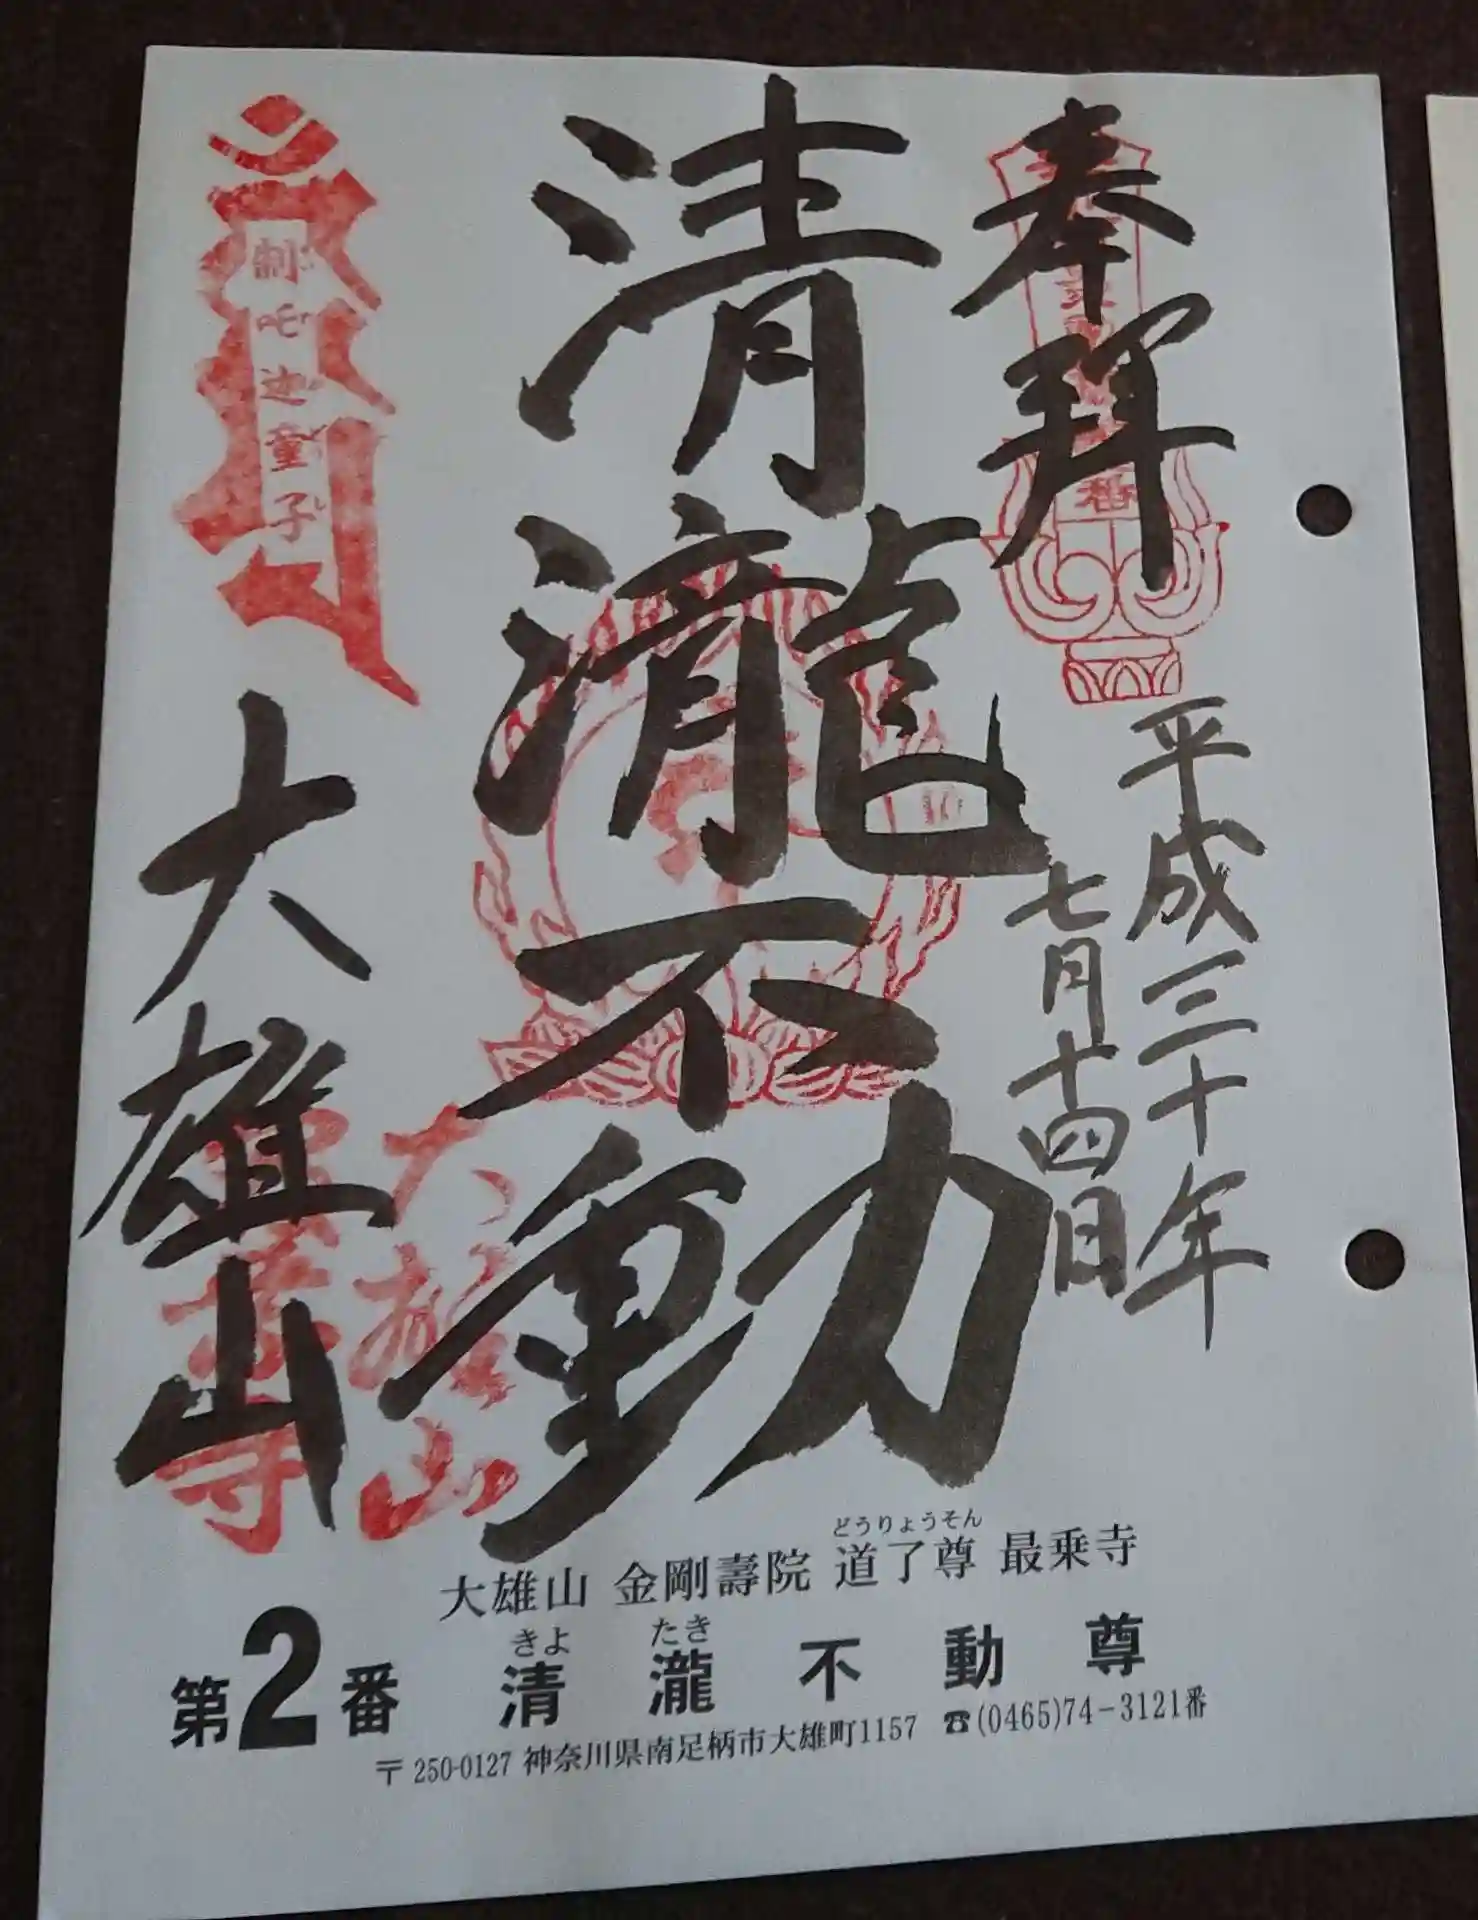 奉拜
平成三十年
七月十四日
清瀧不動
大雄山
制吒迦童子
大雄山
最乗寺
どうりょうそん
大雄山 金剛壽院 道了尊 最乗寺
きよ たき
第2番 清瀧不動尊
〒250-0127 神奈川県南足柄市大雄町1157 ☎(0465)74-3121番